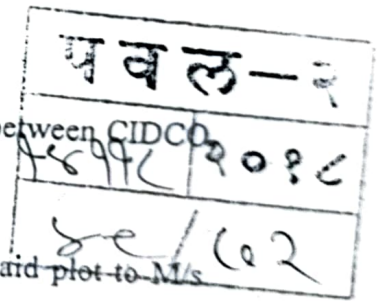 पवल-२
etween CIDCO
१४११८ २०१८
४९/७२
aid plot to M/s